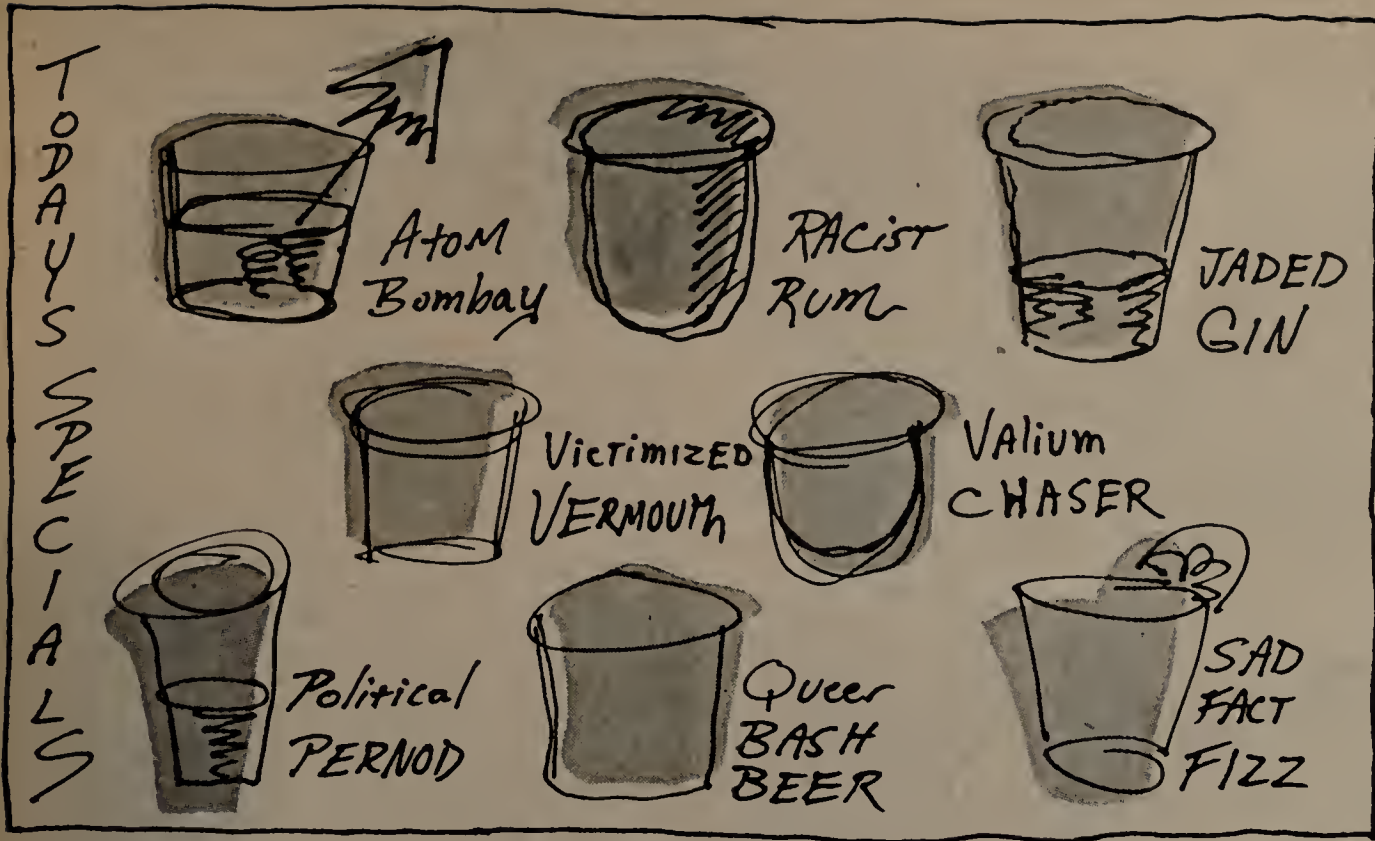 TODAYS SPECIALS
Atom
Bombay
RAcisT
Rum
JADED
GIN
VicTimIZED
VERMOUTh
VAlium
CHASER
Political
PERNOD
Queer
BASH
BEER
SAD
FACT
FIZZ